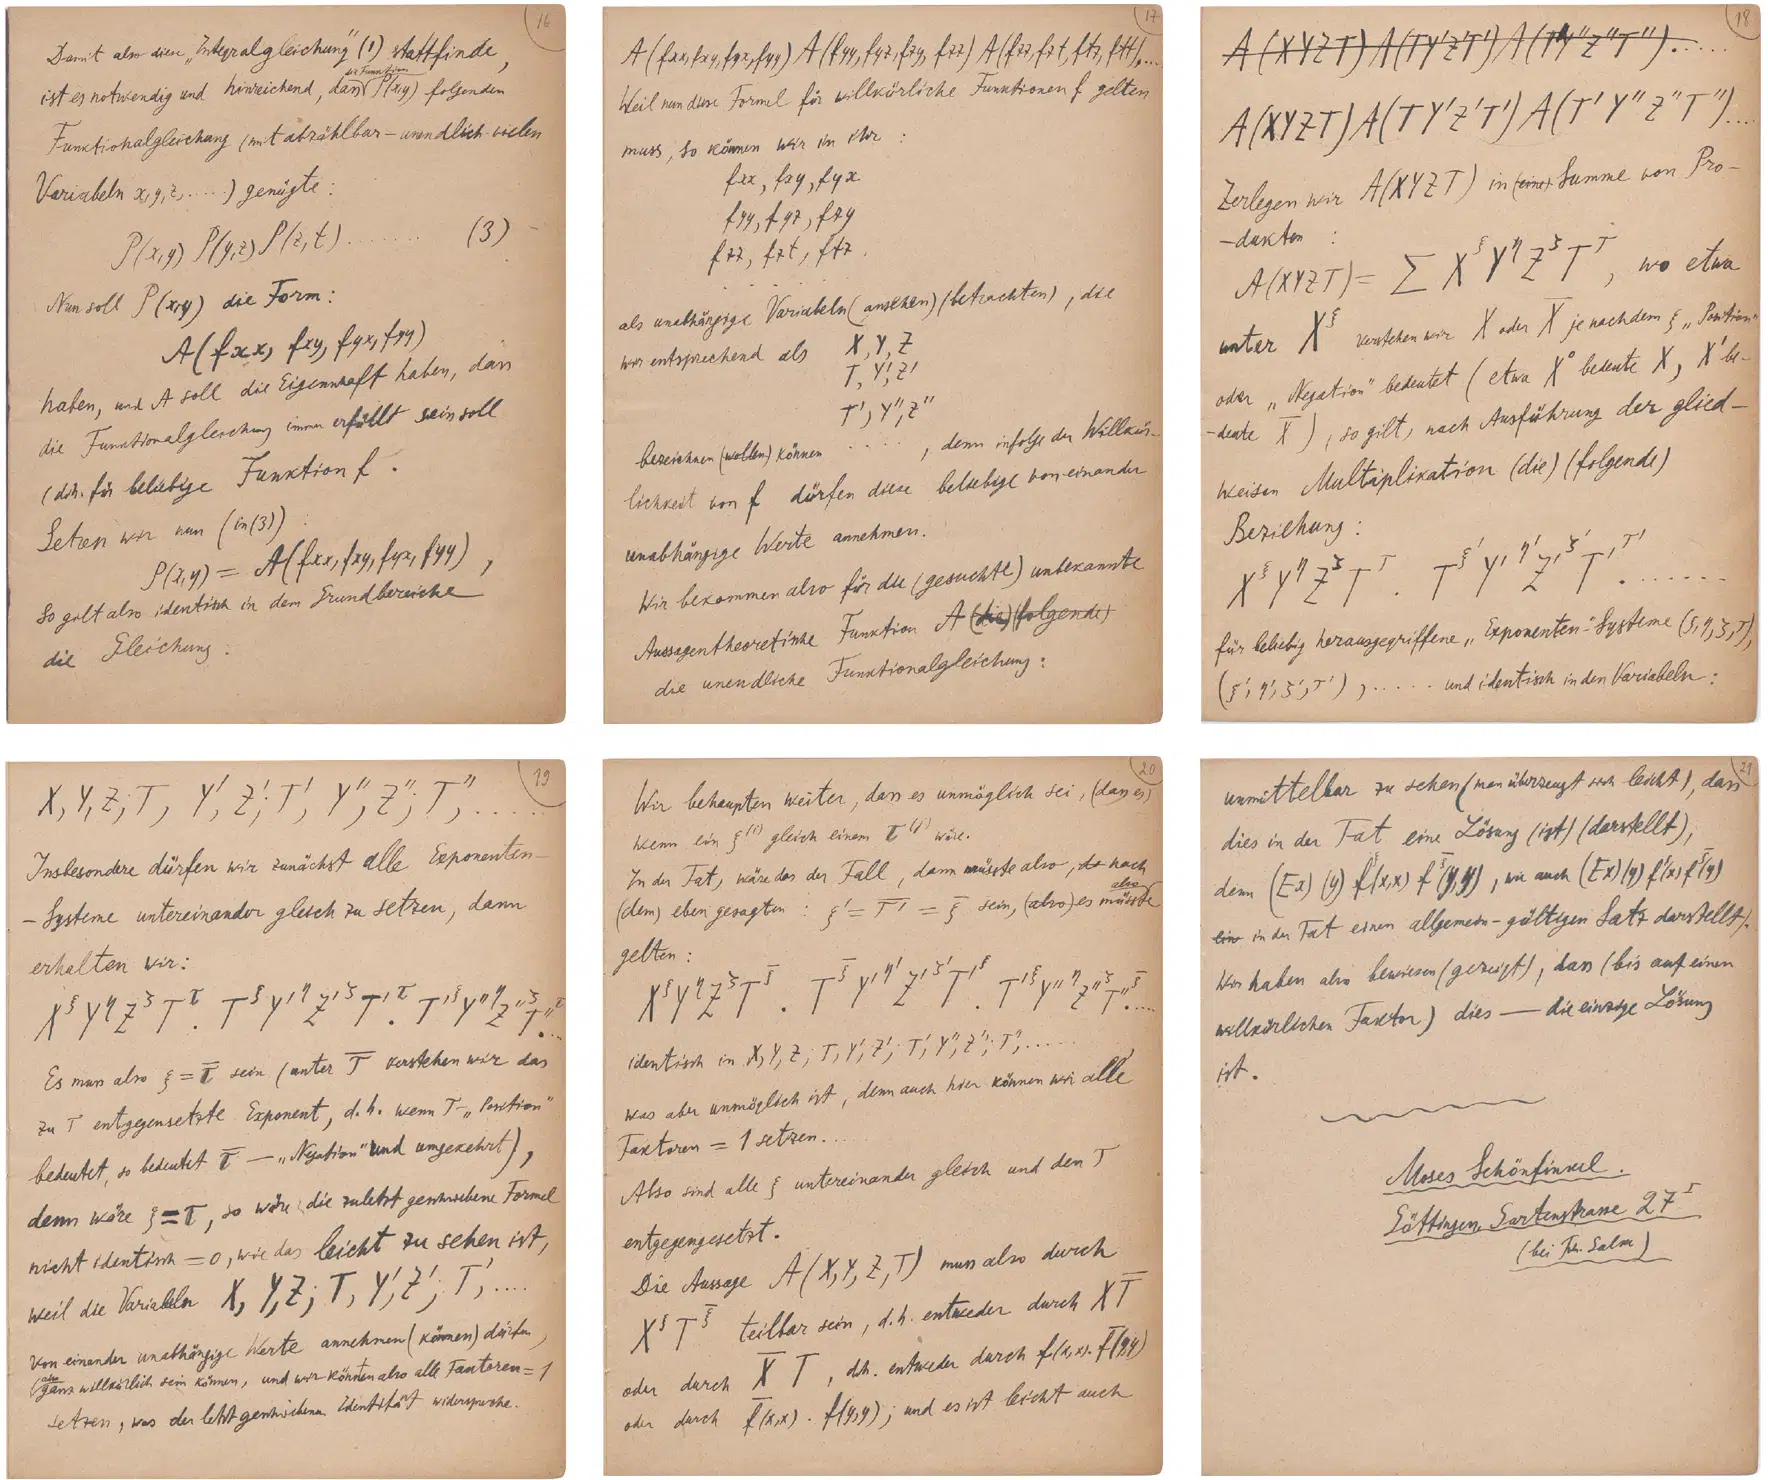 16
Damit also diese „Integralgleichung" (1) stattfinde,
ist es notwendig und hinreichend, dass die Funktion P(x,y) folgenden
Funktionalgleichung (mit abzählbar-unendlich vielen
Variabeln x,y,z,.....) genügte:
P(x,y) P(y,z) P(z,t) ........ (3)
Nun soll P(x,y) die Form:
A(fxx, fxy, fyx, fyy)
haben, und A soll die Eigenschaft haben, dass
die Funktionalgleichung immer erfüllt sein soll
(d.h. für beliebige Funktion f.
Setzen wir nun (in (3)) :
P(x,y) = A(fxx, fxy, fyx, fyy),
so gilt also identisch in dem Grundbereiche
die Gleichung:
17
A(fxx,fxy,fyx,fyy) A(fyy,fyz,fzy,fzz) A(fzz,fzt,ftz,ftt)....
Weil nun diese Formel für willkürliche Funktionen f gelten
muss, so können wir in ihr :
fxx, fxy, fyx
fyy, fyz, fzy
fzz, fzt, ftz.
. . . . . .
als unabhängige Variabeln (ansehen) (betrachten), die
wir entsprechend als X, Y, Z
T, Y', Z'
T', Y'', Z''
bezeichnen (wollen) können ....., denn infolge der Willkür-
lichkeit von f dürfen diese beliebige von einander
unabhängige Werte annehmen.
Wir bekommen also für die (gesuchte) unbekannte
Aussagentheoretische Funktion A (die) (folgende)
die unendliche Funktionalgleichung:
18
A(XYZT) A(TY'Z'T') A(T'Y''Z''T'')......
A(XYZT) A(TY'Z'T') A(T'Y''Z''T'')....
Zerlegen wir A(XYZT) in (eine) Summe von Pro-
-dukten :
A(XYZT) = ∑ X^ξ Y^η Z^ζ T^τ, wo etwa
unter X^ξ verstehen wir X oder X̅ je nachdem ξ „Position"
oder „Negation" bedeutet (etwa X⁰ bedeute X, X' be-
-deute X̅), so gilt, nach Ausführung der glied-
weisen Multiplikation (die) (folgende)
Beziehung:
X^ξ Y^η Z^ζ T^τ . T^ξ' Y'^η' Z'^ζ' T'^τ' .......
für beliebig herausgegriffene „Exponenten"-Systeme (ξ,η,ζ,τ),
(ξ',η',ζ',τ'),...... und identisch in den Variabeln:
19
X, Y, Z; T, Y', Z'; T', Y'', Z''; T'',.....
Insbesondere dürfen wir zunächst alle Exponenten-
-Systeme untereinander gleich zu setzen, dann
erhalten wir:
X^ξ Y^η Z^ζ T^τ . T^ξ Y'^η Z'^ζ T'^τ . T'^ξ Y''^η Z''^ζ T''^τ ....
Es muss also ξ = τ̅ sein (unter τ̅ verstehen wir das
zu τ entgegensetzte Exponent, d.h. wenn τ-„Position"
bedeutet, so bedeutet τ̅ — „Negation" und umgekehrt),
denn wäre ξ = τ, so wäre die zuletzt geschriebene Formel
nicht identisch = 0, wie das leicht zu sehen ist,
weil die Variabeln X, Y, Z; T, Y', Z'; T',....
von einander unabhängige Werte annehmen (können) dürfen,
(also ganz willkürlich sein können, und wir könnten also alle Faktoren = 1
setzen, was der letztgeschriebenen Identität widerspreche.
20
Wir behaupten weiter, dass es unmöglich sei, (dass es)
wenn ein ξ^(i) gleich einem τ^(j) wäre.
In der Tat, wäre das der Fall, dann müsste also, nach
(dem) eben gesagten : ξ' = τ̅' = ξ̅ sein, (also) es müsste also
gelten:
X^ξ Y^η Z^ζ T^ξ̅ . T^ξ̅ Y'^η' Z'^ζ' T'^ξ . T'^ξ Y''^η Z''^ζ T''^ξ̅ .....
identisch in X, Y, Z; T, Y', Z'; T', Y'', Z''; T'',......,
was aber unmöglich ist, denn auch hier können wir alle
Faktoren = 1 setzen....
Also sind alle ξ untereinander gleich und den τ
entgegengesetzt.
Die Aussage A(X,Y,Z,T) muss also durch
X^ξ T^ξ̅ teilbar sein, d.h. entweder durch XT̅
oder durch X̅ T, d.h. entweder durch f(x,x). f̅(y,y)
oder durch f̅(x,x) . f(y,y); und es ist leicht auch
21
unmittelbar zu sehen (man überzeugt sich leicht), dass
dies in der Tat eine Lösung (ist) (darstellt),
denn (Ex) (y) f^ξ(x,x) f^ξ̅(y,y), wie auch (Ex)(y) f^ξ(x) f^ξ̅(y)
in der Tat einen allgemein-gültigen Satz darstellt).
Wir haben also bewiesen (gezeigt), dass (bis auf einen
willkürlichen Faktor) dies — die einzige Lösung
ist.
Moses Schönfinkel.
Göttingen, Gartenstrasse 27^I
(bei Fr. Salm)